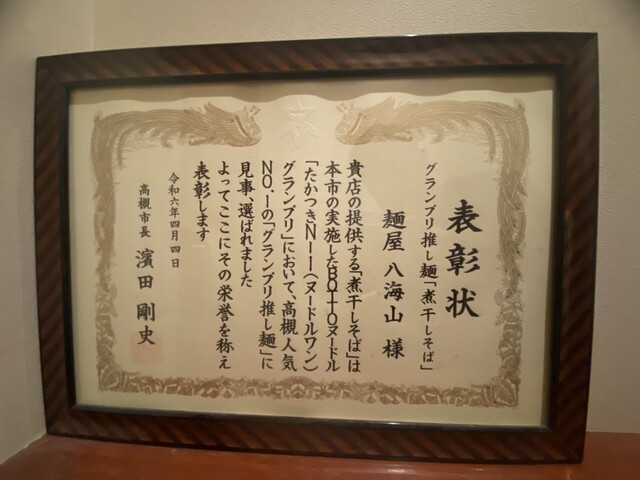 表彰状
グランプリ推し麺「煮干しそば」
麺屋 八海山 様
貴店の提供する「煮干しそば」は
本市の実施したBOTTOヌードル
「たかつきN-1(ヌードルワン)
グランプリ」において、高槻人気
NO.1の「グランプリ推し麺」に
見事、選ばれました
よってここにその栄誉を称え
表彰します
令和六年四月四日
高槻市長 濱田 剛史